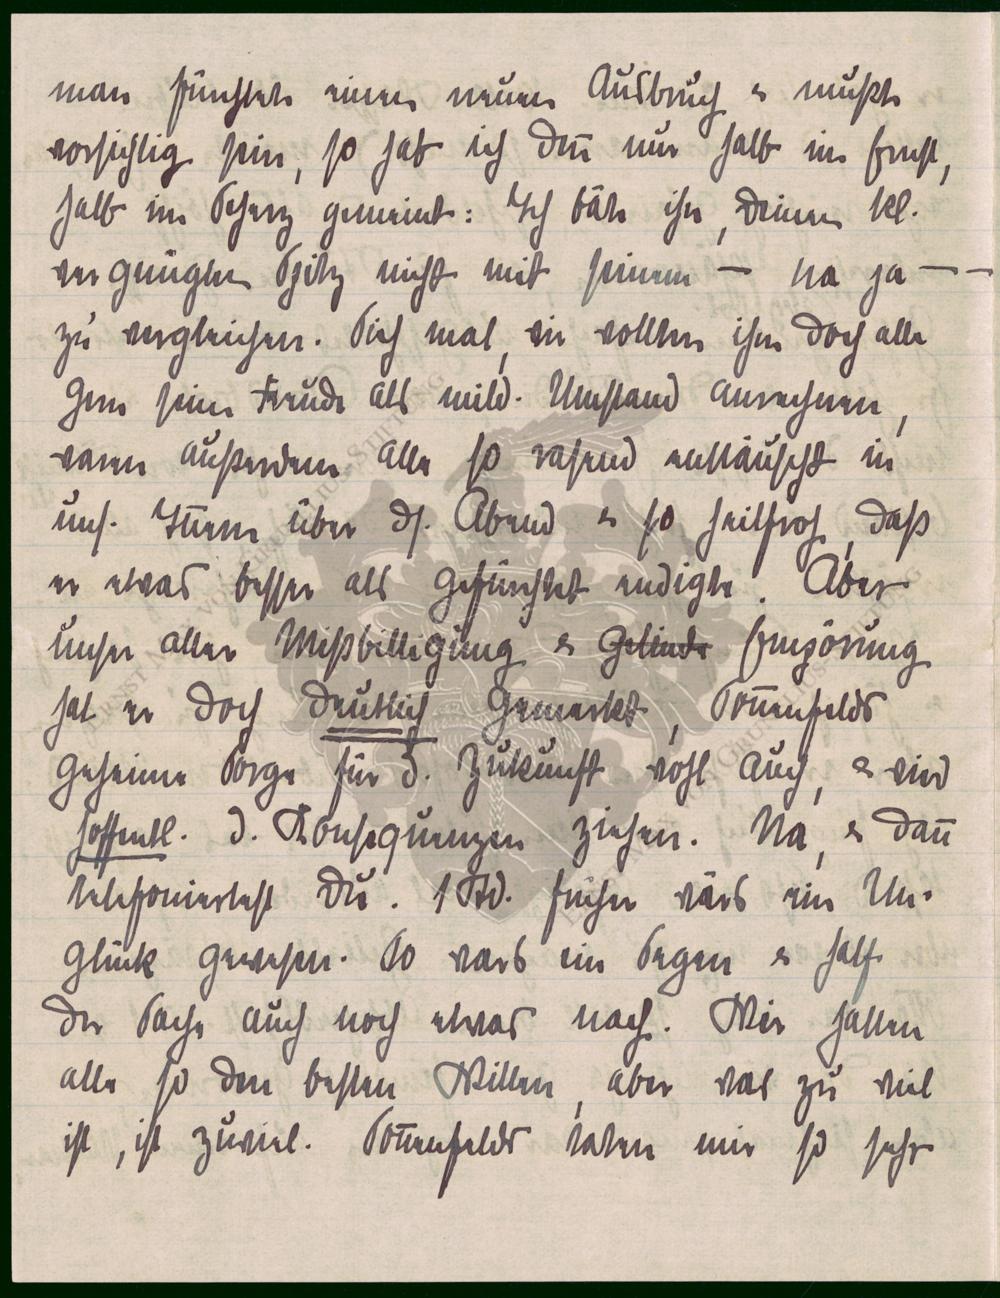 man fürchtete einen neuen Ausbruch & mußte
vorsichtig sein, so hab ich denn nur halb im Ernst,
halb im Scherz gemeint: Ich bäte ihn, Deinen kl.
vergnügten Spitz nicht mit seinem — na ja — —
zu vergleichen. Sieh mal, wir wollten ihm doch alle
gern seine Freude als mild. Umstand anrechnen,
waren außerdem alle so rasend enttäuscht in
uns. Innern über ds. Abend & so heilfroh, daß
er etwas besser als gefürchtet endigte. Aber
unser aller Mißbilligung & Gelinde Empörung
hat er doch deutlich gemerkt, Sonnenfelds
geheime Sorge für d. Zukunft wohl auch, & wird
hoffentl. d. Konsequenzen ziehen. Na, & dann
telefoniertest Du. 1 Std. früher wärs ein Un-
glück gewesen. So wars ein Segen & half
der Sache auch noch etwas nach. Wir hatten
alle so den besten Willen, aber was zu viel
ist, ist zuviel. Sonnenfelds taten mir so sehr